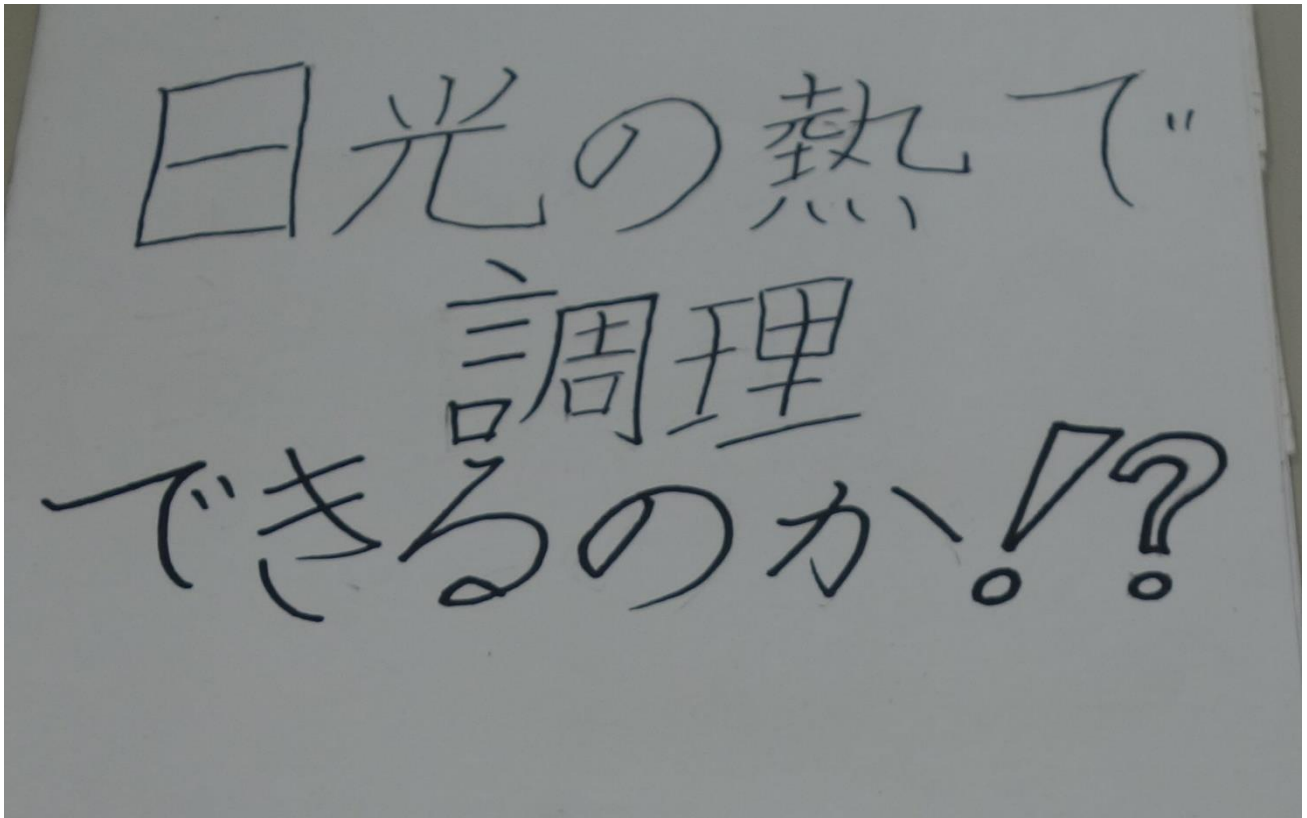 日光の熱で
調理
できるのか!?